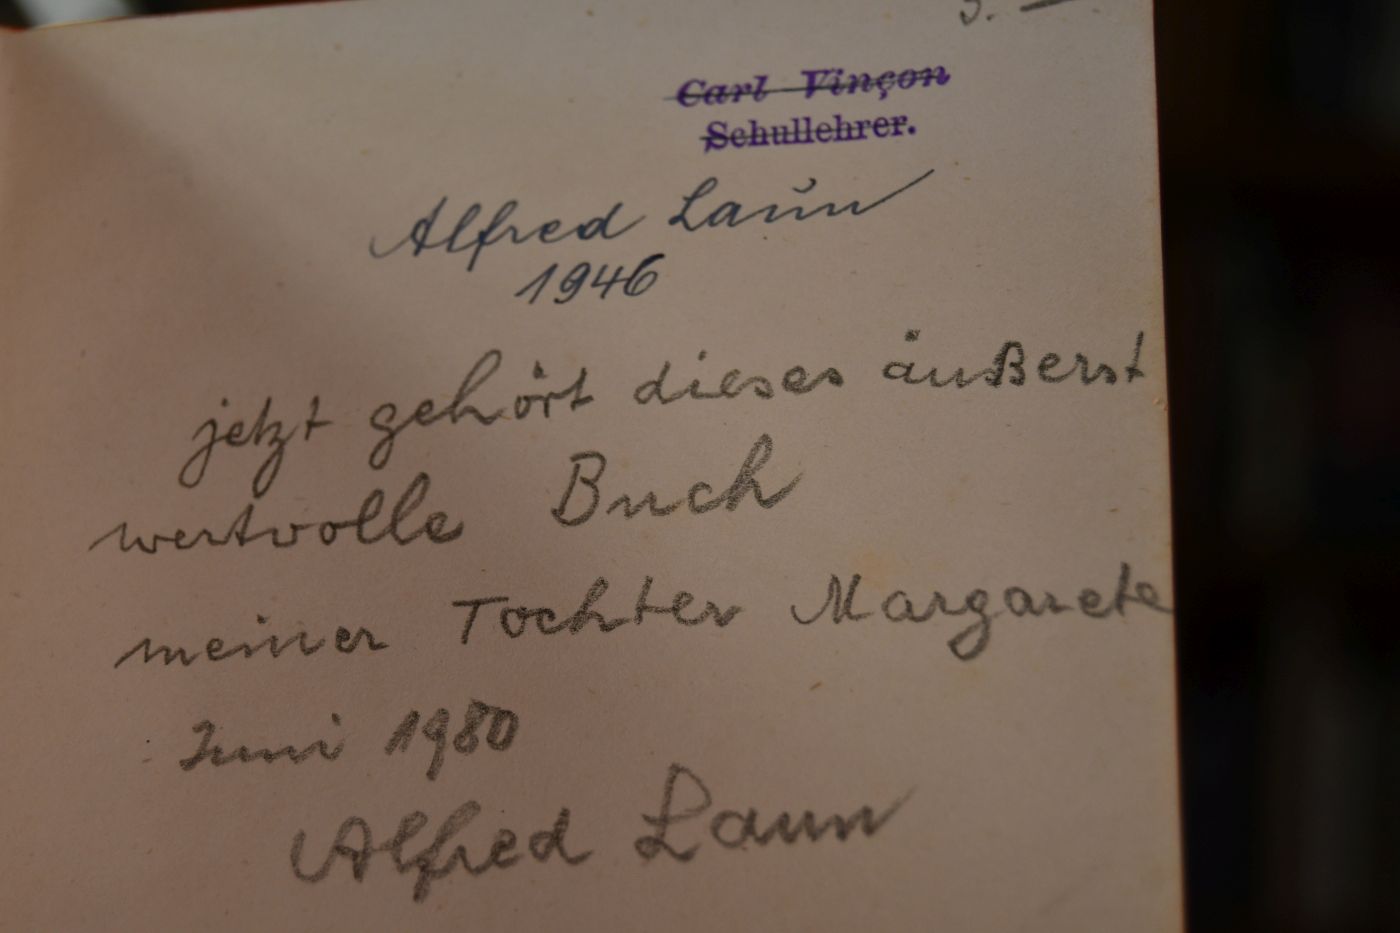 3. —
Carl Vinçon
Schullehrer.
Alfred Laun
1946
jetzt gehört dieses äußerst
wertvolle Buch
meiner Tochter Margarete
Juni 1980
Alfred Laun